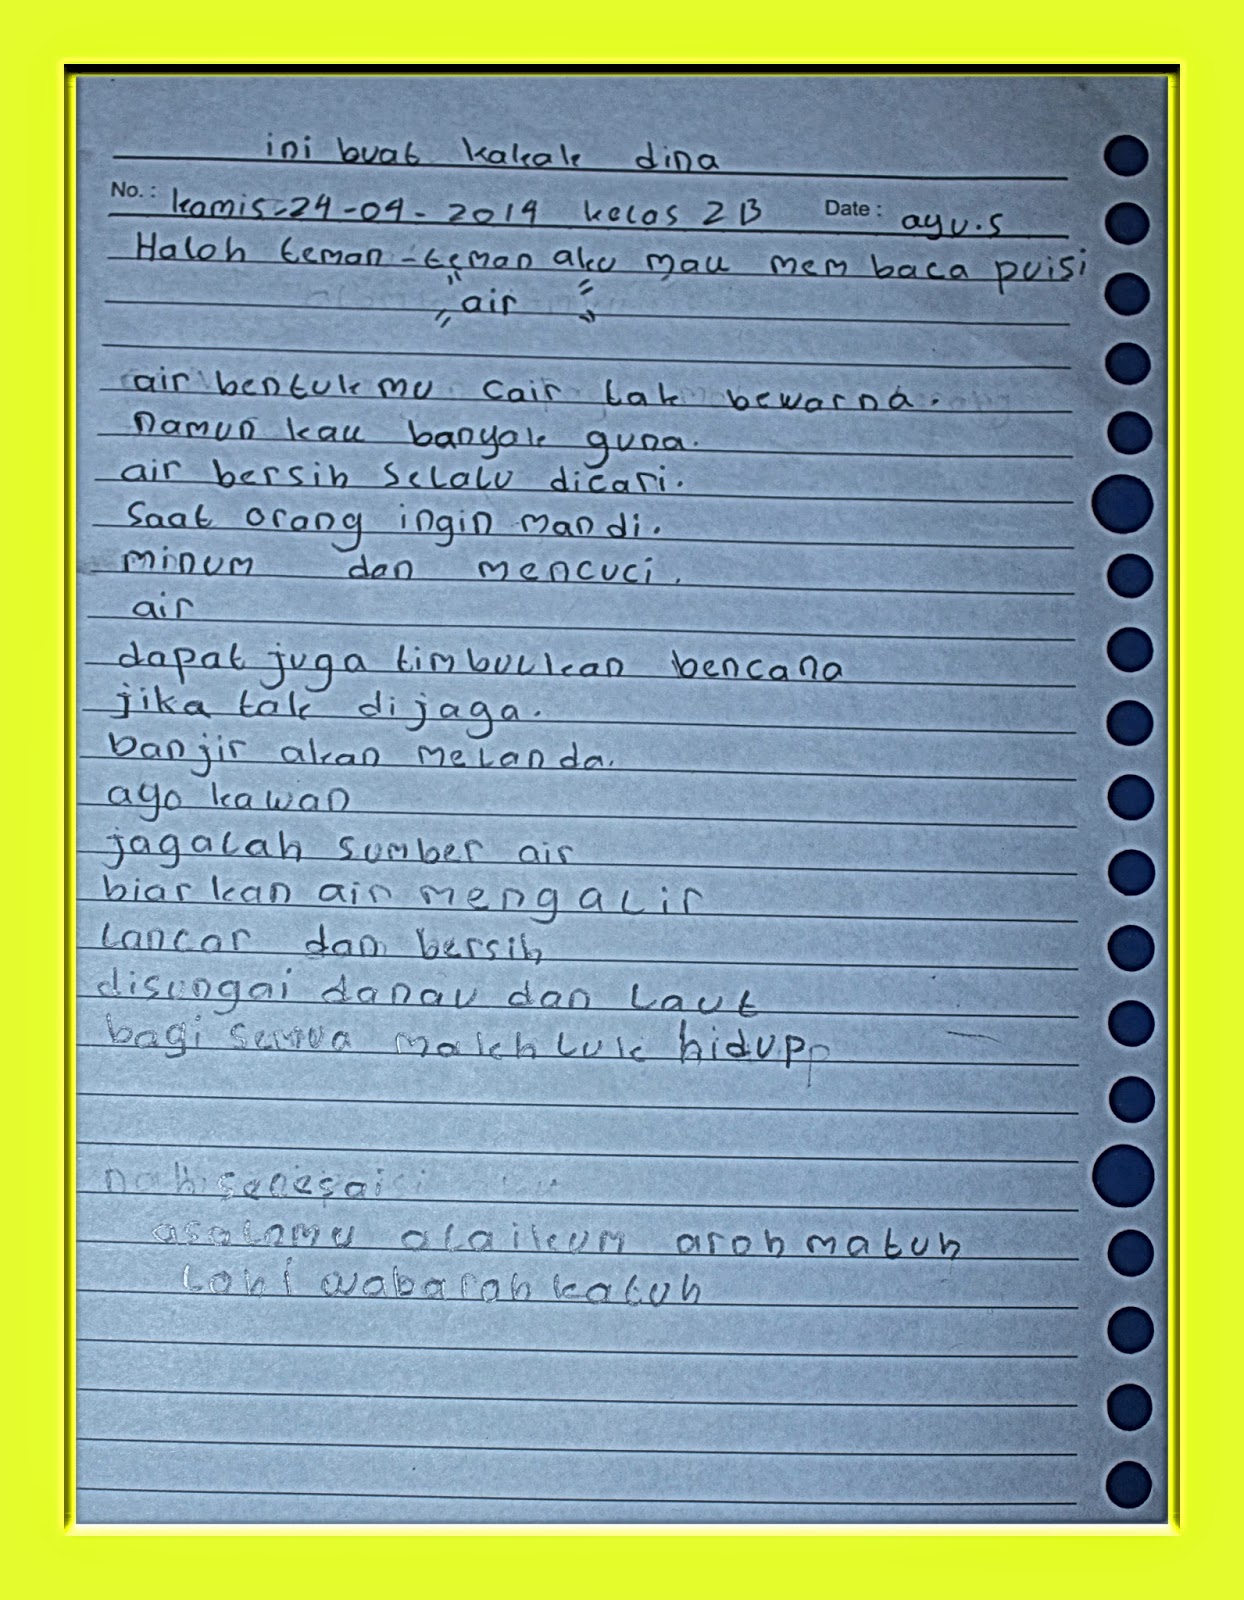 ini buat kakak dina
No.: kamis-24-04-2014 kelas 2B Date: ayu.s
Haloh teman-teman aku mau mem baca puisi
"air"
air bentuk mu cair tak bewarna.
Namun kau banyak guna.
air bersih selalu dicari.
Saat orang ingin mandi.
minum dan mencuci.
air
dapat juga timbulkan bencana
jika tak dijaga.
banjir akan melanda.
ayo kawan
jagalah sumber air
biar kan air mengalir
lancar dan bersih
disungai danau dan laut
bagi semua makhluk hidup
nah selesai
asalamu alaikum aroh matuh
lohi wabarohkatuh